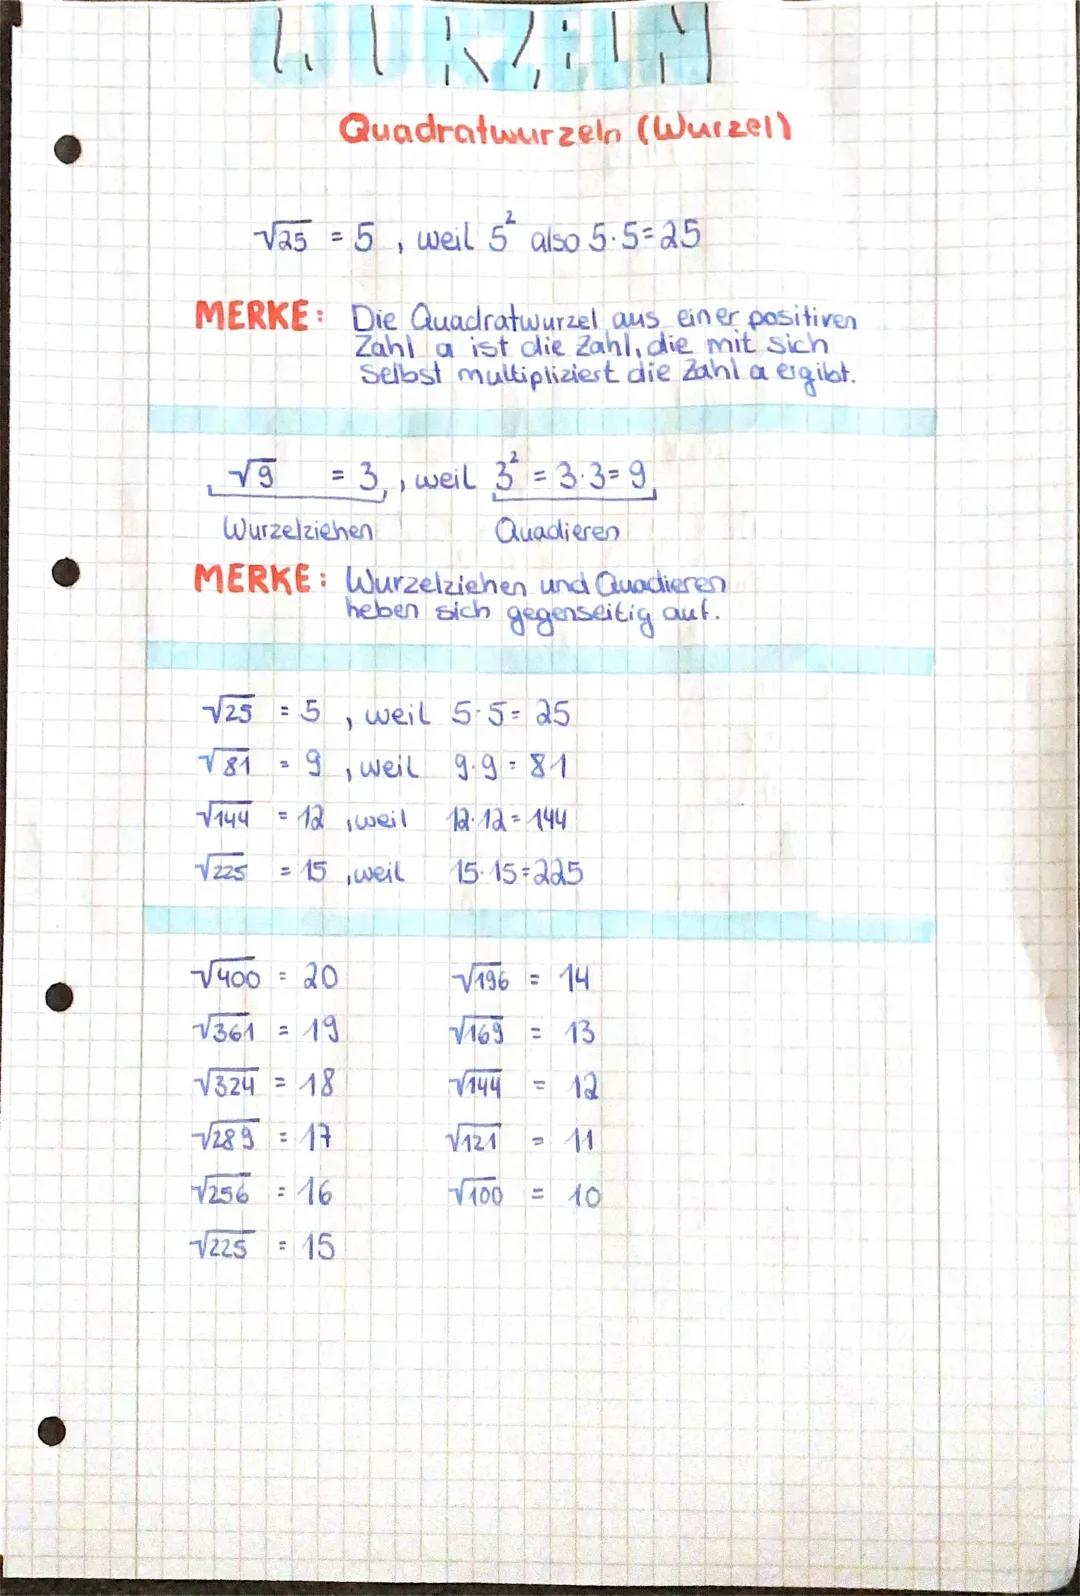 WURZELN
Quadratwurzeln (Wurzel)
√25 = 5, weil 5² also 5·5=25
MERKE: Die Quadratwurzel aus einer positiven
Zahl a ist die Zahl, die mit sich
selbst multipliziert die Zahl a ergibt.
√9 = 3, weil 3² = 3·3=9
Wurzelziehen Quadieren
MERKE: Wurzelziehen und Quadieren
heben sich gegenseitig auf.
√25 = 5, weil 5·5= 25
√81 = 9, weil 9·9=81
√144 = 12, weil 12·12=144
√225 = 15, weil 15·15=225
√400 = 20 √196 = 14
√361 = 19 √169 = 13
√324 = 18 √144 = 12
√289 = 17 √121 = 11
√256 = 16 √100 = 10
√225 = 15